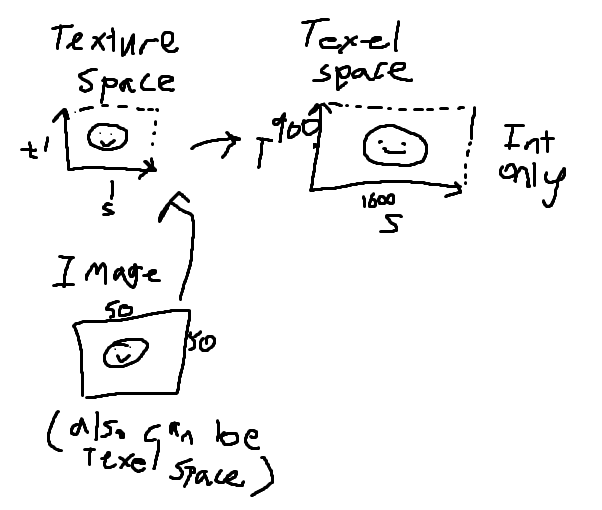 Texture
Space
t
1
1
s
Texel
space
T
900
1600
S
Int
only
Image
50
50
(also can be
Texel space)